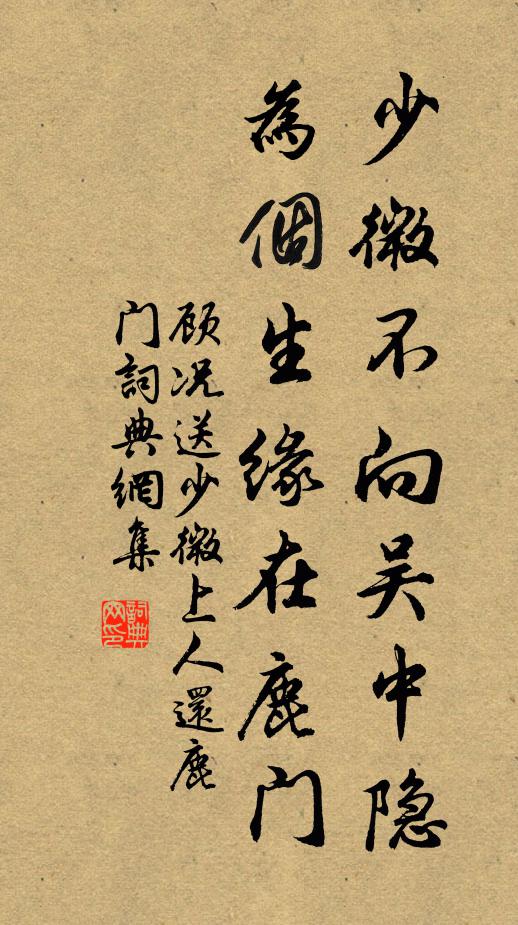 少微不向吴中隐
為個生緣在鹿门
顾况送少微上人還鹿
门詞典網集
詞典
网印